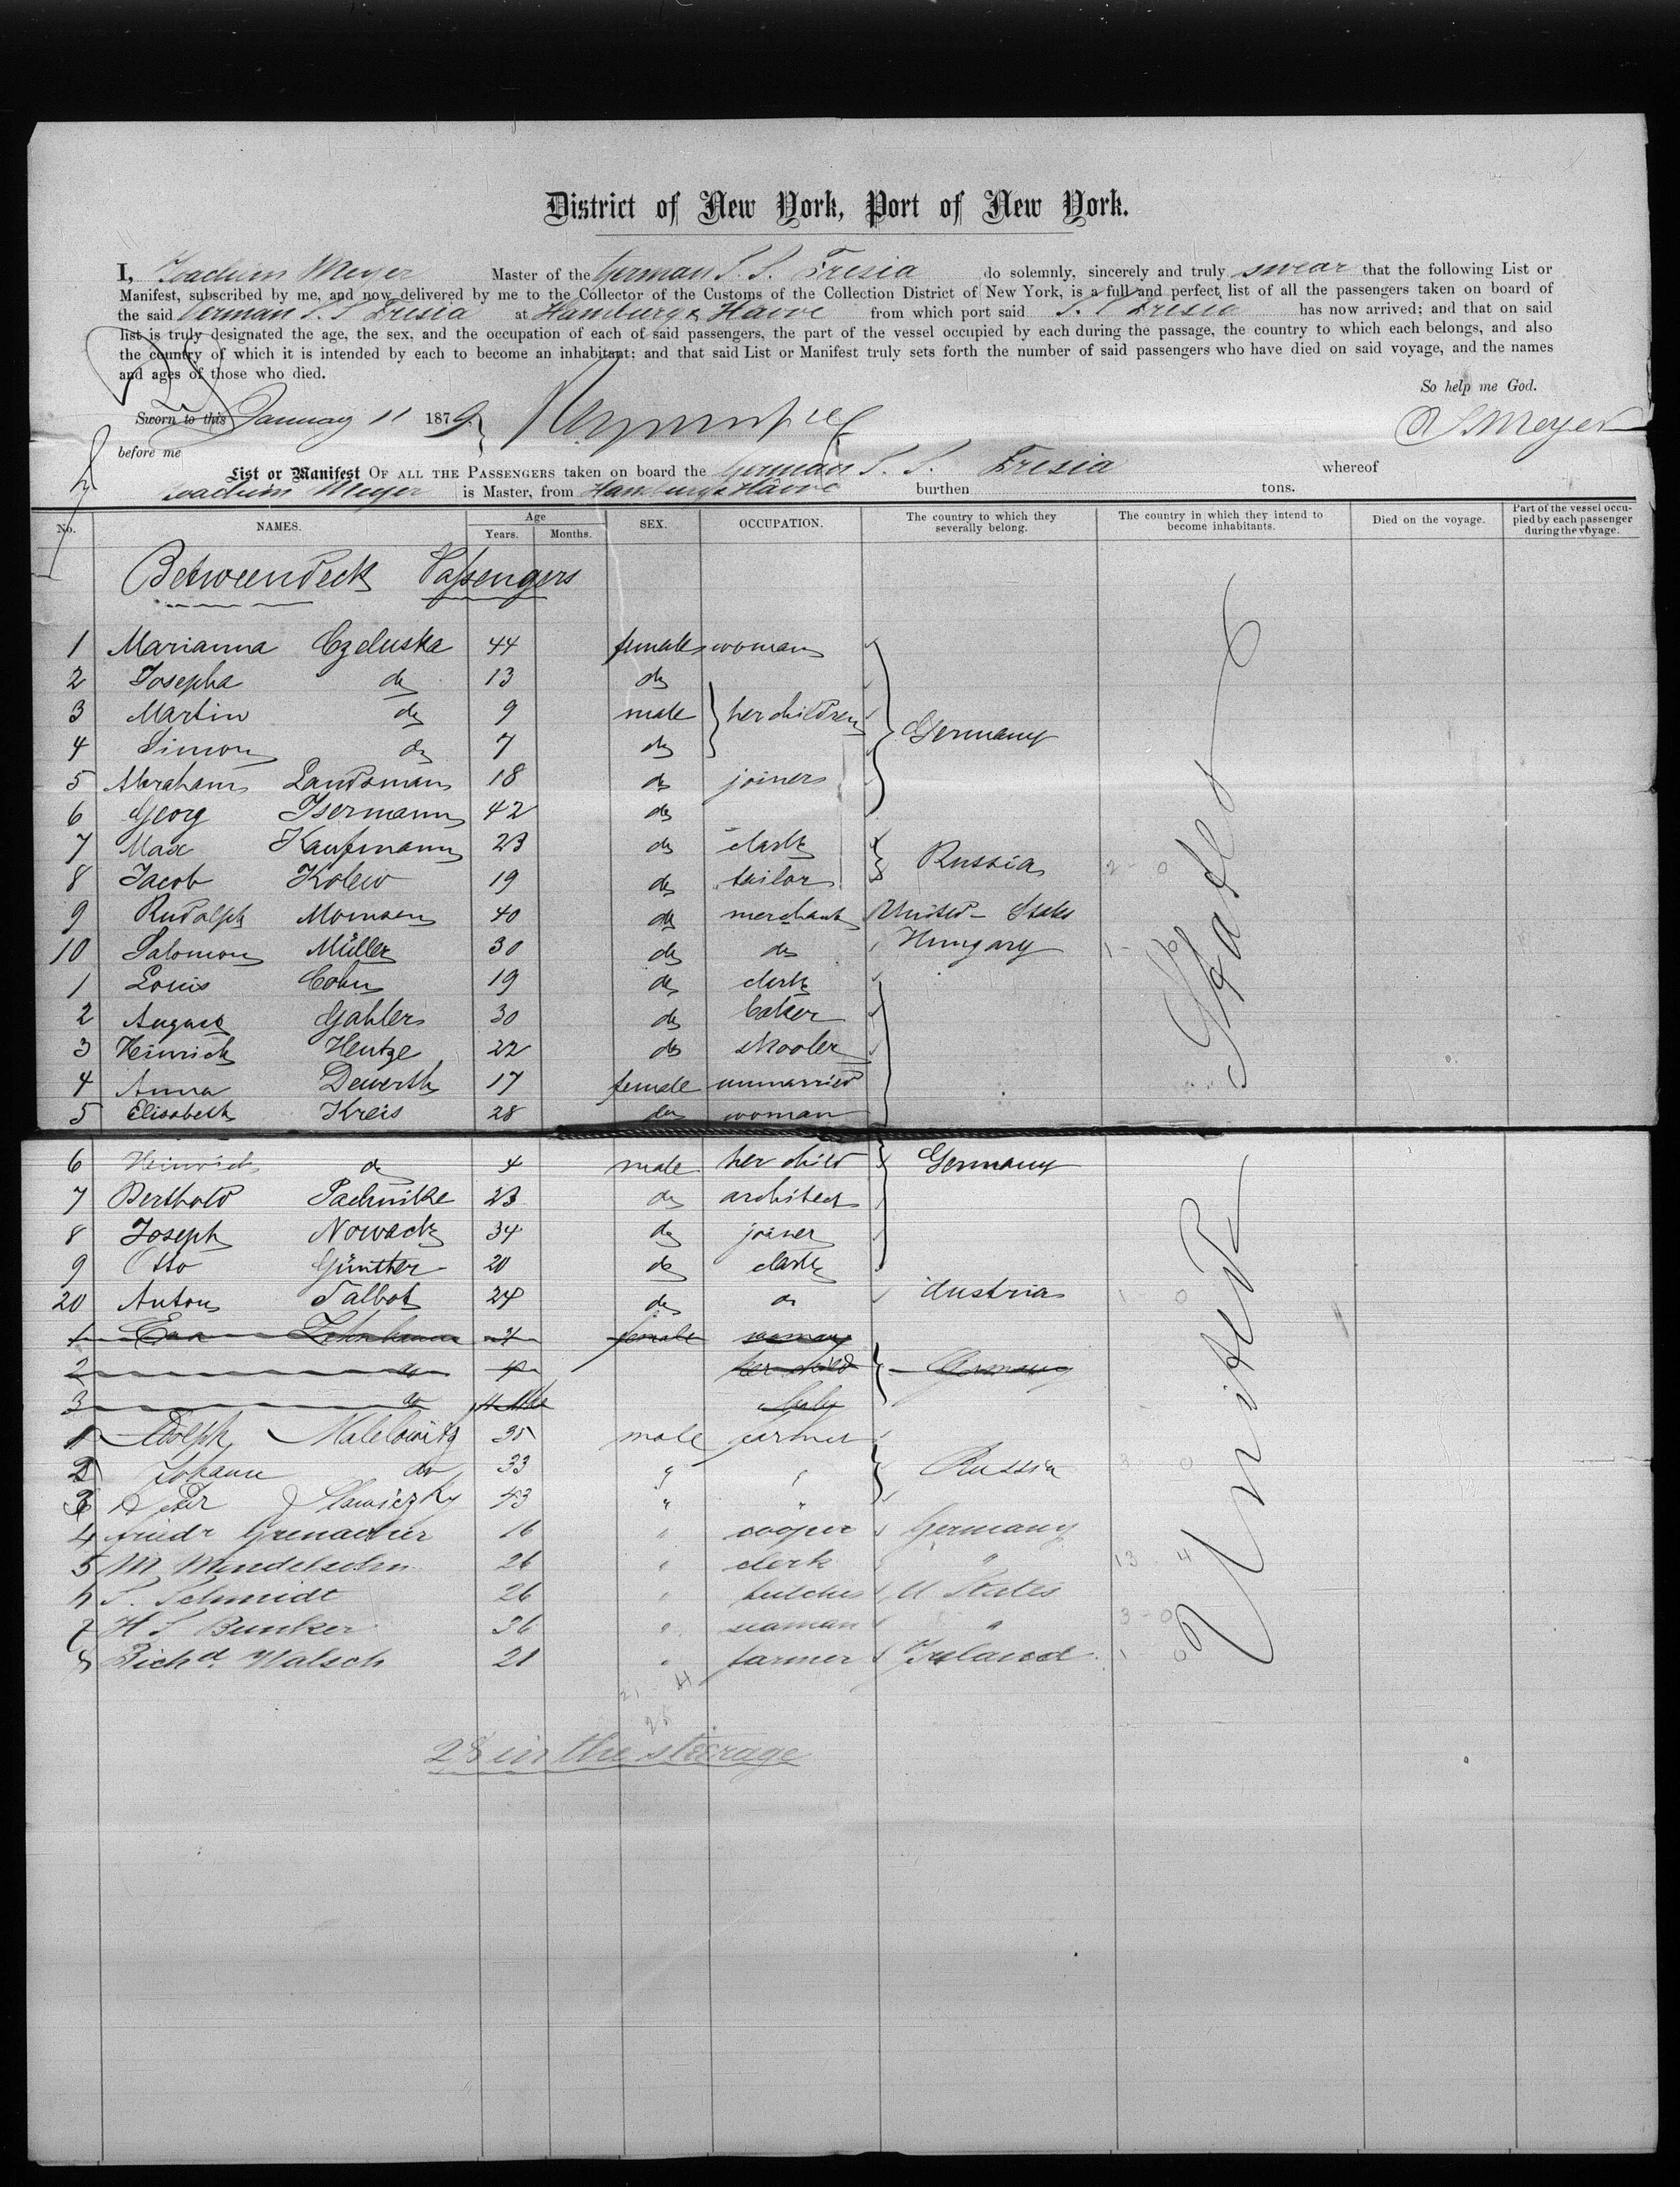 District of New York, Port of New York.
I, Joachim Meyer Master of the German S. S. Fresia do solemnly, sincerely and truly swear that the following List or
Manifest, subscribed by me, and now delivered by me to the Collector of the Customs of the Collection District of New York, is a full and perfect list of all the passengers taken on board of
the said German S. S Fresia at Hamburg & Havre from which port said S. S Fresia has now arrived; and that on said
list is truly designated the age, the sex, and the occupation of each of said passengers, the part of the vessel occupied by each during the passage, the country to which each belongs, and also
the country of which it is intended by each to become an inhabitant; and that said List or Manifest truly sets forth the number of said passengers who have died on said voyage, and the names
and ages of those who died.
So help me God.
Sworn to this January 11 1879 Meyer
before me
List or Manifest OF ALL THE PASSENGERS taken on board the German S. S. Fresia whereof
Joachim Meyer is Master, from Hamburg & Havre burthen tons.
No. NAMES. Age Years. Months. SEX. OCCUPATION. The country to which they severally belong. The country in which they intend to become inhabitants. Died on the voyage. Part of the vessel occupied by each passenger during the voyage.
Betweendeck Passengers
1 Marianna Czeluska 44 female woman
2 Josepha do 13 do
3 Martin do 9 male her children Germany
4 Simon do 7 do
5 Abraham Landsman 18 do joiner
6 Georg Isermann 42 do
7 Max Kaufmann 23 do clark Russia
8 Jacob Kolew 19 do tailor 2 - 0
9 Rudolph Momsen 40 do merchant United States
10 Salomon Müller 30 do do Hungary 1 -
1 Louis Cohn 19 do clark
2 August Gahler 30 do baker
3 Heinrich Hentze 22 do skooler
4 Anna Dewerth 17 female unmarried
5 Elisabeth Kreis 28 do woman
6 Heinrich do 4 male her child Germany
7 Berthold Pachnike 23 do architect
8 Joseph Nowack 34 do joiner
9 Otto Günther 20 do clark
20 Anton Talbot 24 do do Austria 1 - 0
1 Eva female woman
2 do 4 her child Germany
3 do 11 Mos baby
1 Adolph Malelowitz 35 male farmer
2 Johann do 33 " " Russia 3 0
3 Peter Slawiczky 43 " "
4 Friedr Grenacher 16 " cooper Germany
5 M. Mendelsohn 26 " clerk " 13 4
6 S. Schmidt 26 " butcher U States
7 H S Bunker 36 " seaman " 3 - 0
8 Richd. Walsch 21 " farmer Ireland 1 0
States
United
21 4
28 in the steerage